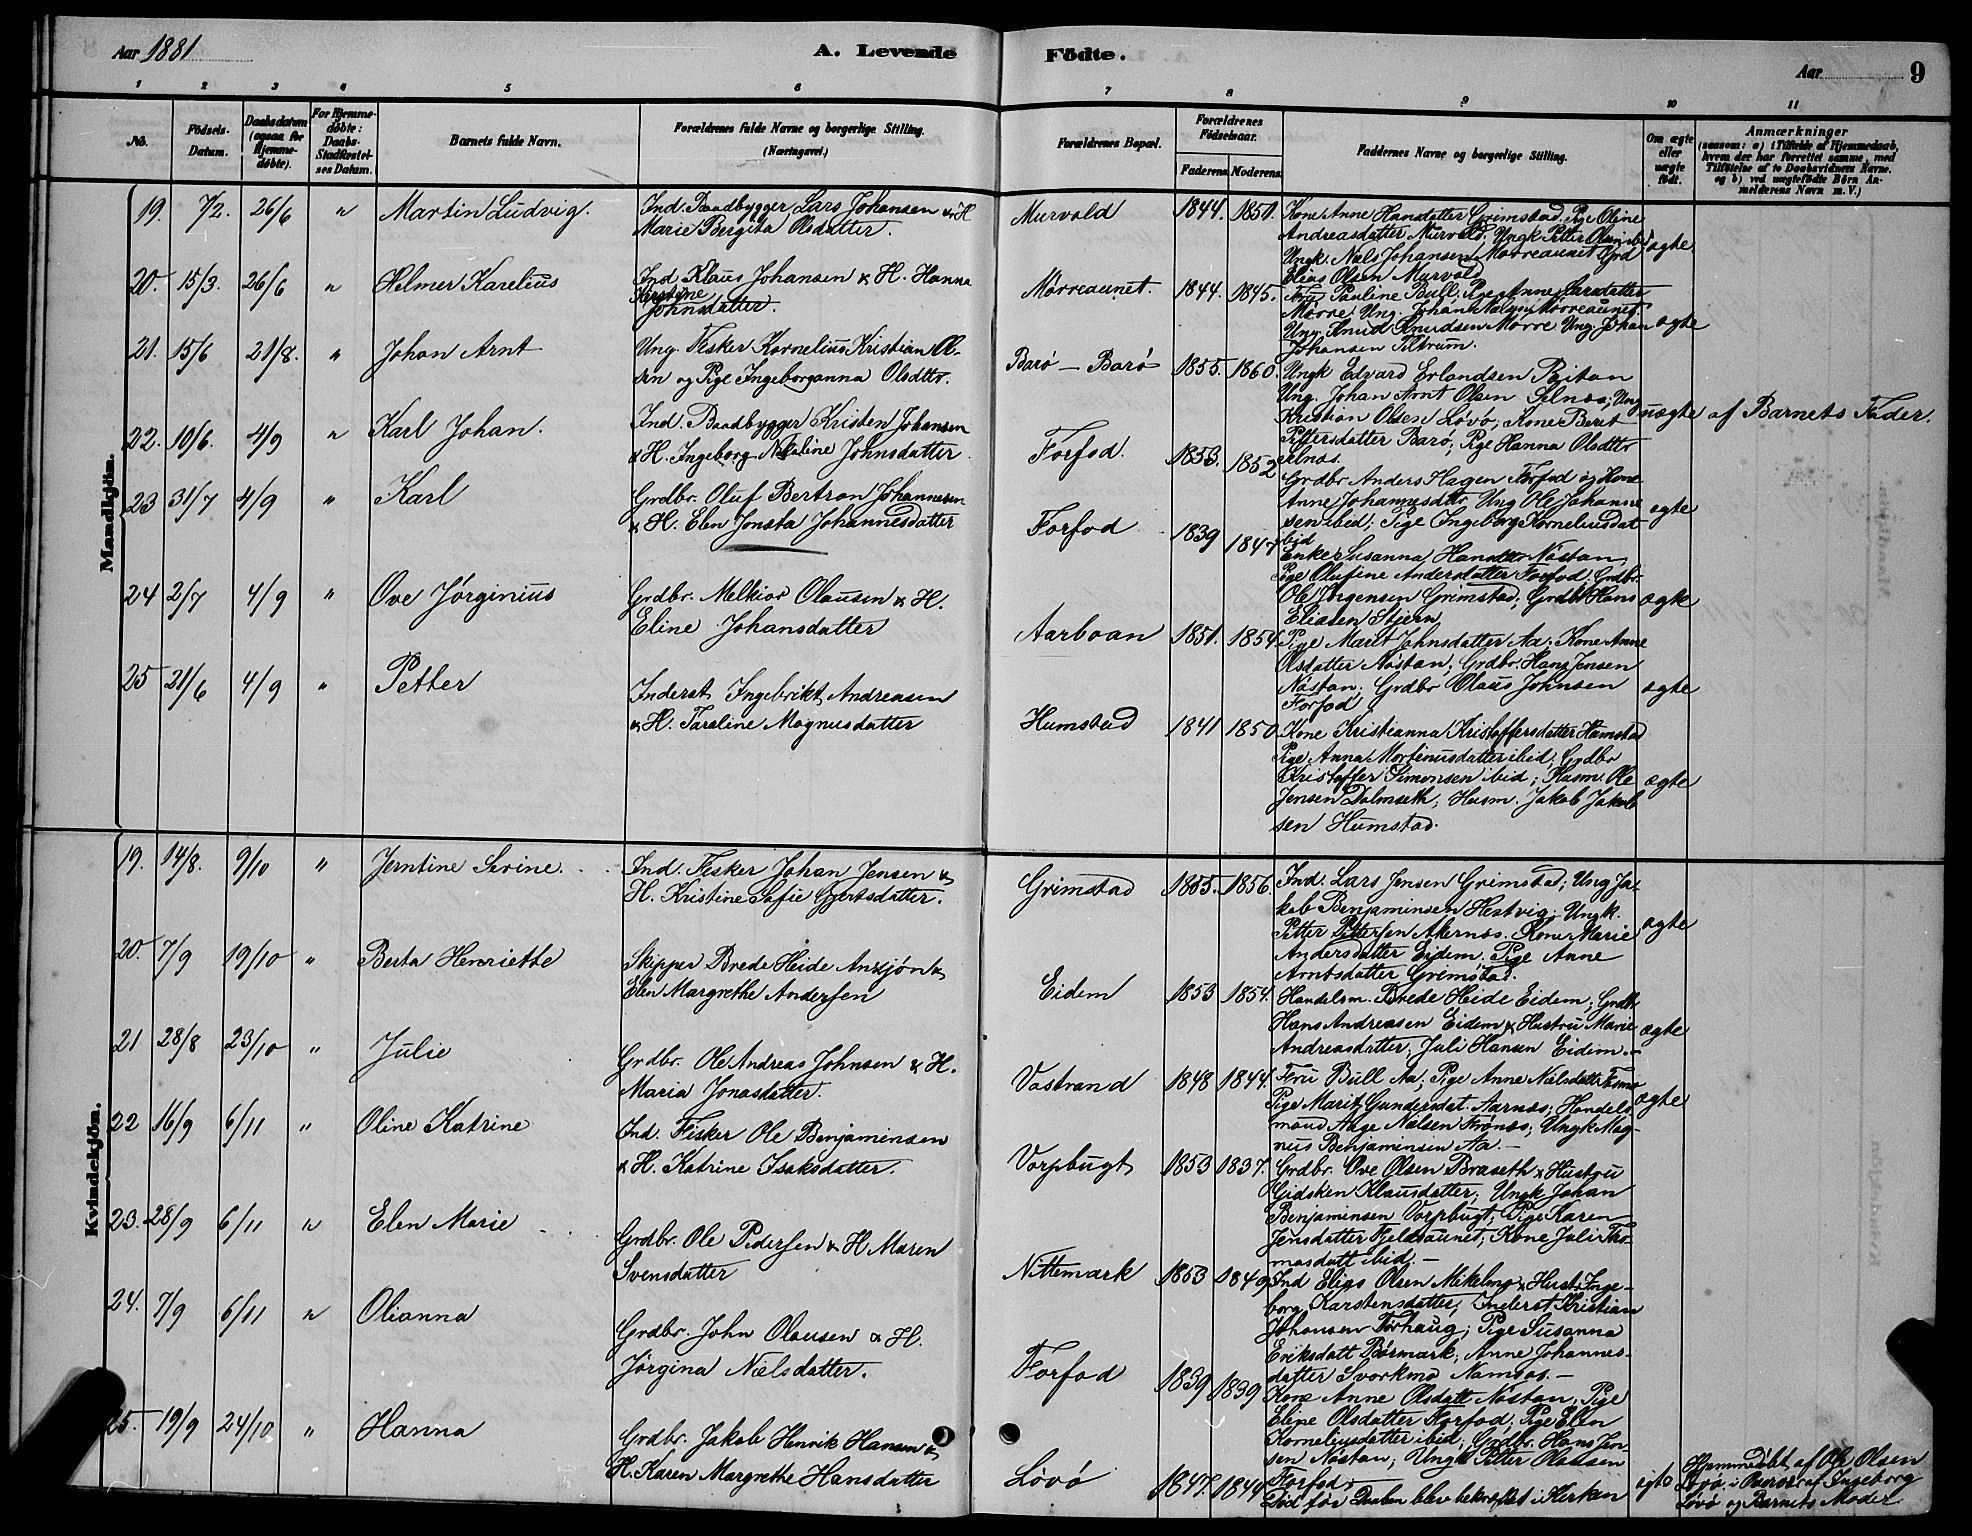 Aar 1881
A. Levende Födte.
Aar 9
1 2 3 4 5 6 7 8 9 10 11
No.
Födsels-Datum.
Daabsdatum (ogsaa for Hjemmedöbte).
For Hjemmedöbte: Daabs-Stadfæstelses Datum.
Barnets fulde Navn.
Forældrenes fulde Navne og borgerlige Stilling. (Næringsvei.)
Forældrenes Bopæl.
Forældrenes Födselsaar.
Faderens Moderens
Faddernes Navne og borgerlige Stilling.
Om ægte eller uægte født.
Anmærkninger
(saasom: a) i Tilfælde af Hjemmedaab, hvem der har forrettet samme, med Tilføielse af to Daabsvidners Navne, og b) ved uægtefødte Børn Anmelderens Navn m. V.)
Mandkjön.
19. 7/2. 26/6 " Martin Ludvig.
Ind. Baadbygger Lars Johansen & H
Marie Bergita Olsdatter.
Murvold 1844. 1851.
Kone Anne Hansdatter Grimstad. Pige Oline
Andreasdatter Murvold, Ungk Petter Olsen ibid
Ungk. Nels Johansen Mörreaunet
Elias Olsen Murvold
ægte
20. 15/3. 26/6 " Helmer Karelius
Ind Klaus Johansen & H. Hanna
Kirstine
Johnsdatter.
Mörreaunet. 1844. 1845.
Fru Pauline Bull, Pige Anne Larsdatter
Mörre. Ung. Johan Nielsen Mörreaunet.
Ung. Knud Knudsen Mörre Ung. Johan
Johansen Tiltrum.
ægte
21. 15/6 21/8. " Johan Arnt
Ung. Fisker Kornelius Kristian Ol-
sen og Pige Ingeborganna Olsdttr.
Barö — Barö 1855. 1860.
Ungk Edvard Erlandsen Reitan
Ung. Johan Arnt Olsen Selnæs; Ung
Kristian Olsen Lövö, Kone Beret
Pettersdatter Barö, Pige Hanna Olsdttr
Selnæs.
uægte af Barnets Fader.
22. 10/6. 4/9 " Karl Johan.
Ind. Baadbygger Kristen Johansen
& H. Ingeborg Nikoline Johnsdatter
Forfod. 1853. 1852
Grdbr Anders Hagen Forfod og Kone
Anne Johannesdttr Ung Ole Johanne
sen ibid; Pige Ingeborg Korneliusdat
ibid
ægte
23 31/7 4/9 " Karl
Grdbr. Oluf Bertran Johannesen
& H. Elen Jonsta Johannesdatter
Forfod 1839 1847
Enke Susanna Hansdttr Nöstan,
Pige Olufine Andersdatter Forfod; Grdbr
Ole Jörgensen Grimstad; Grdbr Hans
Eliasen Stjern
ægte
24 2/7 4/9 " Ove Jörginius
Grdbr. Melkior Olausen & H.
Eline Johansdatter
Aarboan 1851. 1854.
Pige Marit Johnsdatter Aa. Kone Anne
Olsdatter Nöstan; Grdbr. Hans Jensen
Nöstan; Grdbr Olaus Johnsen
Forfod
ægte
25 21/6 4/9 " Petter
Inderst Ingebrikt Andreasen
& H. Taraline Magnusdatter
Humstad 1841 1850.
Kone Kristianna Kristoffersdatter Humstad
Pige Anna Mortinusdatter ibid; Grdbr
Kristoffer Simonsen ibid; Husm. Ole
Jensen Dalmseth; Husm. Jakob Jakob
sen Humstad.
ægte
Kvindekjön.
19. 14/8. 9/10 " Jerntine Serine.
Ind. Fisker Johan Jensen &
H. Kristine Sofie Gjertsdatter.
Grimstad 1855. 1856.
Ind. Lars Jensen Grimstad; Ung Ja-
kob Benjaminsen Hestvig; Ungk.
Petter Pettersen Akernæs. Kone Marie
Andersdatter Eidem, Pige Anne
Arntsdatter Grimstad.
ægte
20. 7/9 19/10 " Berta Henriette
Skipper Brede Heide Anzjön &
Elen Margrethe Andersen
Eidem 1853 1854.
Handelsm. Brede Heide Eidem; Grdbr
Hans Andreasen Eidem & Hustru Marie
Andreasdatter; Juli Hansen Eidem.—
ægte
21 28/8 23/10 " Julie
Grdbr. Ole Andreas Johnsen & H.
Maria Jonasdatter.
Vastrand 1848 1844.
Fru Bull Aa; Pige Anne Nielsdatter
Pige Marit Gundersdat. Aarnæs; Handels
mand Aage Nielsen Frönæs; Ungk Mag-
nus Benjaminsen Aa.—
ægte
22 16/9 6/11 " Oline Katrine
Ind. Fisker Ole Benjaminsen
& H. Katrine Isaksdatter.
Vorpbugt 1853 1837.
Grdbr. Ove Olsen Braseth & Hustru
Gidsken Klausdatter; Ungk Johan
Benjaminsen Vorpbugt; Pige Karen
Jensdatter Fjeldaunet; Kone Juli Tho-
masdatt ibid.—
23. 28/9 6/11 " Elen Marie
Grdbr. Ole Pedersen & H. Maren
Svensdatter
Nittemark 1853 1849
Ind Elias Olsen Mikelmo & Hust. Inge-
borg Karstensdatter, Inderst Kristian
Johansen Forhaug; Pige Susanna
Eriksdatt Börmark; Anne Johannes-
datter Svorkmo Namsos.—
24. 7/9 6/11 " Olianna
Grdbr. John Olausen & H.
Jörgina Nielsdatter.
Forfod 1839 1839
Kone Anne Olsdatt Nöstan; Pige
Eline Olsdatter Forfod; Pige Elen
Korneliusdatter ibid; Grdbr. Hans Jen-
sen Nöstan; Ungk Petter Olausen
Forfod.
25. 19/9 24/10 " Hanna
Grdbr. Jakob Henrik Hansen &
H. Karen Margrethe Hansdatter
Lövö 1847. 1844
Död för Daaben blev bekræftet i Kirken
ægte
Hjemmedöbt af Ole Olsen
Lövö i Overvær af Ingeborg
Lövö og Barnets Moder